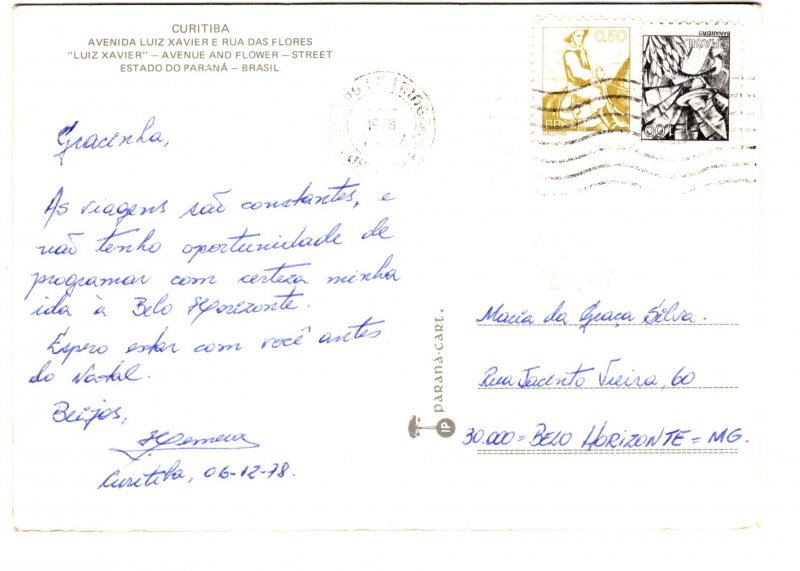 CURITIBA
AVENIDA LUIZ XAVIER E RUA DAS FLORES
"LUIZ XAVIER" – AVENUE AND FLOWER – STREET
ESTADO DO PARANÁ – BRASIL
0,50
BRASIL
GAÚCHO
BRASIL
BANANEIRO
1978
Gracinha,
As viagens são constantes, e
não tenho oportunidade de
programar com certeza minha
ida à Belo Horizonte.
Espero estar com você antes
do Natal.
Beijos,
Curitiba, 06-12-78.
PARANÁ-CART.
IP
Maria da Graça Silva.
Rua Jacento Vieira, 60
30.000 = BELO HORIZONTE = MG.